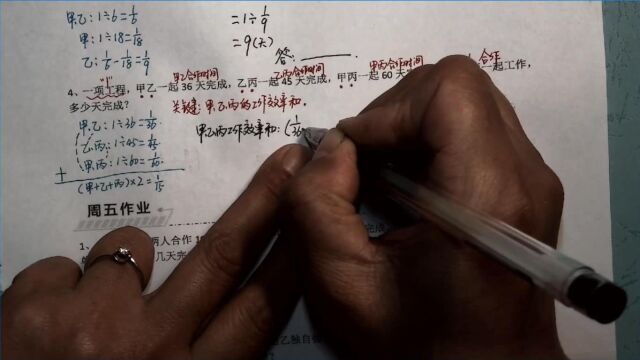 甲乙:1÷6=1/6
甲:1÷18=1/18
乙:1/6-1/18=1/9
=1÷1/9
=9(天)
答:
"1" 甲乙合作时间 乙丙合作时间 甲丙合作时间 合作
4、一项工程,甲乙一起 36 天完成,乙丙一起 45 天完成,甲丙一起 60 天 一起工作,
多少天完成? 关键:甲乙丙的工作效率和.
甲乙:1÷36=1/36
乙丙:1÷45=1/45
甲丙:1÷60=1/60
+
(甲+乙+丙)×2=1/15
甲乙丙工作效率和:(1/36
周五作业
1、 两人合作 1
几天完
乙独自